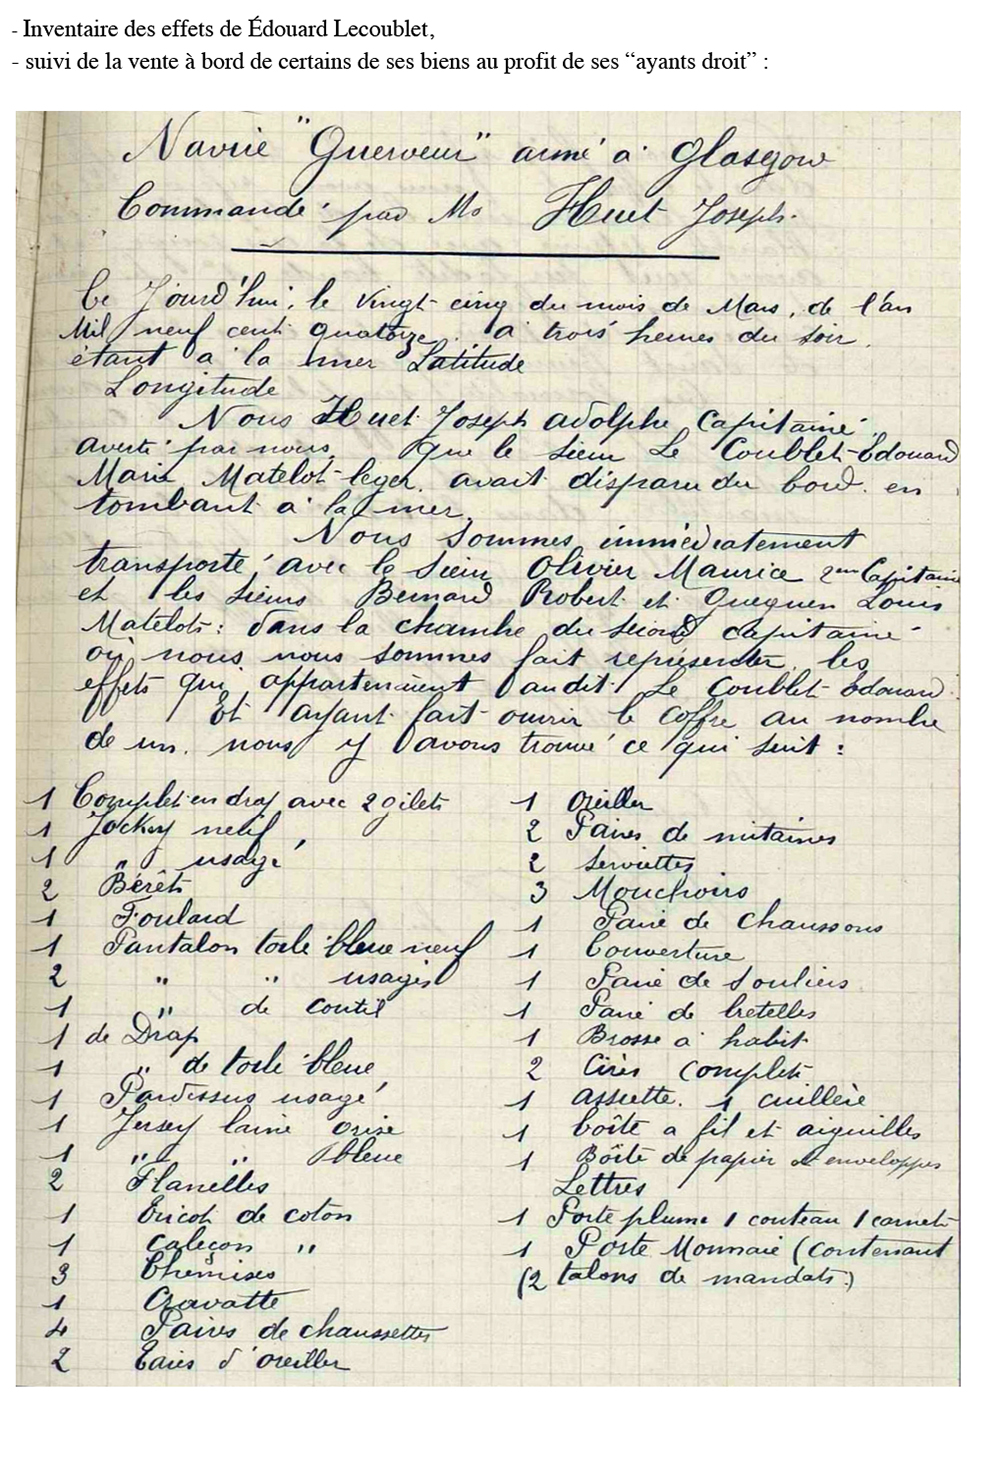 - Inventaire des effets de Édouard Lecoublet,
- suivi de la vente à bord de certains de ses biens au profit de ses “ayants droit” :
Navire "Guerveur" armé à Glasgow
Commandé par Mr Huet Joseph.
Ce Jourd'hui, le Vingt cinq du mois de Mars, de l'an
Mil neuf cent quatorze. à trois heures du soir.
étant à la mer Latitude
Longitude
Nous Huet Joseph adolphe Capitaine
averti par nous, que le sieur Le Coublet Edouard
Marie Matelot-leger. avait disparu du bord. en
tombant à la mer.
Nous sommes immédiatement
transporté avec le sieur Olivier Maurice 2em Capitaine
et les sieurs Bernard Robert et Gueguen Louis
Matelots : dans la chambre du second capitaine
où nous, nous sommes fait représenter, les
effets qui appartenaient audit Le Coublet Edouard.
Et ayant fait ouvrir le coffre au nombre
de un. nous y avons trouvé ce qui suit :
1 Complet en drap avec 2 gilets
1 Jockey neuf
1 " usagé
2 Bérêts
1 Foulard
1 Pantalon toile bleue neuf
2 " " usagés
1 " de coutil
1 de Drap
1 " de toile bleue
1 Pardessus usagé
1 Jersey laine grise
1 " " bleue
2 Flanelles
1 Tricot de coton
1 Caleçon "
3 Chemises
1 Cravatte
4 Paires de chaussettes
2 Taies d'oreiller
1 Oreiller
2 Paires de mitaines
2 Serviettes
3 Mouchoirs
1 Paire de Chaussons
1 Couverture
1 Paire de Souliers
1 Paire de bretelles
1 Brosse à habit
2 Cirés complets
1 assiette. 1 cuillère
1 boîte a fil et aiguilles
1 Boîte de papier et enveloppes
Lettres
1 Porte plume 1 couteau 1 carnet
1 Porte Monnaie (contenant
(2 talons de mandats.)